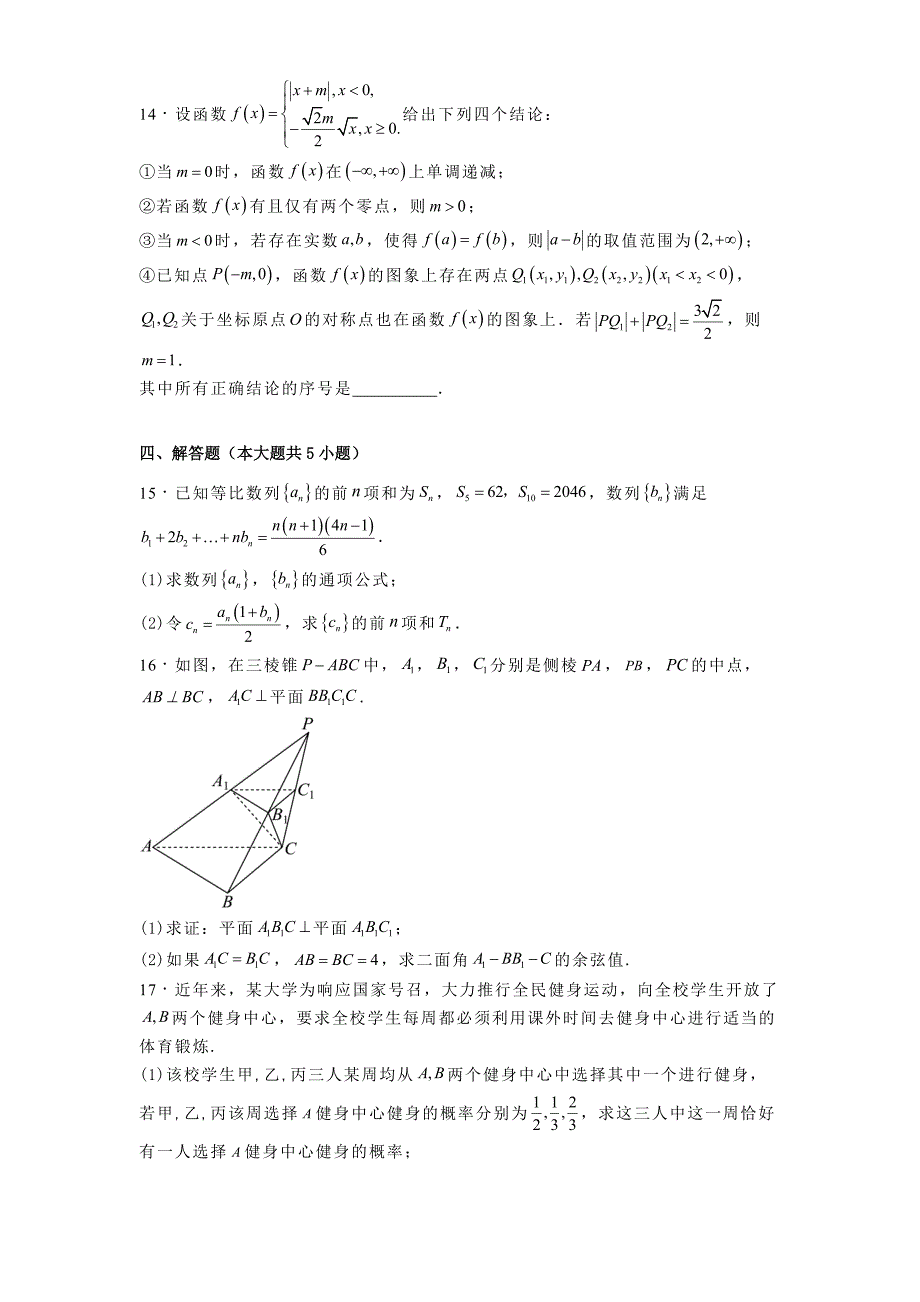 14．设函数 f(x)={|x+m|, x<0, −(√2m/2)√x, x≥0. 给出下列四个结论：
①当 m=0 时，函数 f(x) 在 (−∞,+∞) 上单调递减；
②若函数 f(x) 有且仅有两个零点，则 m>0；
③当 m<0 时，若存在实数 a,b，使得 f(a)=f(b)，则 |a−b| 的取值范围为 (2,+∞)；
④已知点 P(−m,0)，函数 f(x) 的图象上存在两点 Q₁(x₁,y₁),Q₂(x₂,y₂)(x₁<x₂<0)，
Q₁,Q₂ 关于坐标原点 O 的对称点也在函数 f(x) 的图象上．若 |PQ₁|+|PQ₂|=3√2/2，则
m=1．
其中所有正确结论的序号是__________．
四、解答题（本大题共5小题）
15．已知等比数列{aₙ}的前 n 项和为 Sₙ，S₅=62，S₁₀=2046，数列{bₙ}满足
b₁+2b₂+…+nbₙ=n(n+1)(4n−1)/6．
(1)求数列{aₙ}，{bₙ}的通项公式；
(2)令 cₙ=aₙ(1+bₙ)/2，求{cₙ}的前 n 项和 Tₙ．
16．如图，在三棱锥 P−ABC 中，A₁，B₁，C₁ 分别是侧棱 PA，PB，PC 的中点，
AB⊥BC，A₁C⊥平面 BB₁C₁C．
P
A₁
C₁
B₁
A
C
B
(1)求证：平面 A₁B₁C⊥平面 A₁B₁C₁；
(2)如果 A₁C=B₁C，AB=BC=4，求二面角 A₁−BB₁−C 的余弦值.
17．近年来，某大学为响应国家号召，大力推行全民健身运动，向全校学生开放了
A,B 两个健身中心，要求全校学生每周都必须利用课外时间去健身中心进行适当的
体育锻炼．
(1)该校学生甲,乙,丙三人某周均从 A,B 两个健身中心中选择其中一个进行健身，
若甲,乙,丙该周选择 A 健身中心健身的概率分别为 1/2,1/3,2/3，求这三人中这一周恰好
有一人选择 A 健身中心健身的概率；